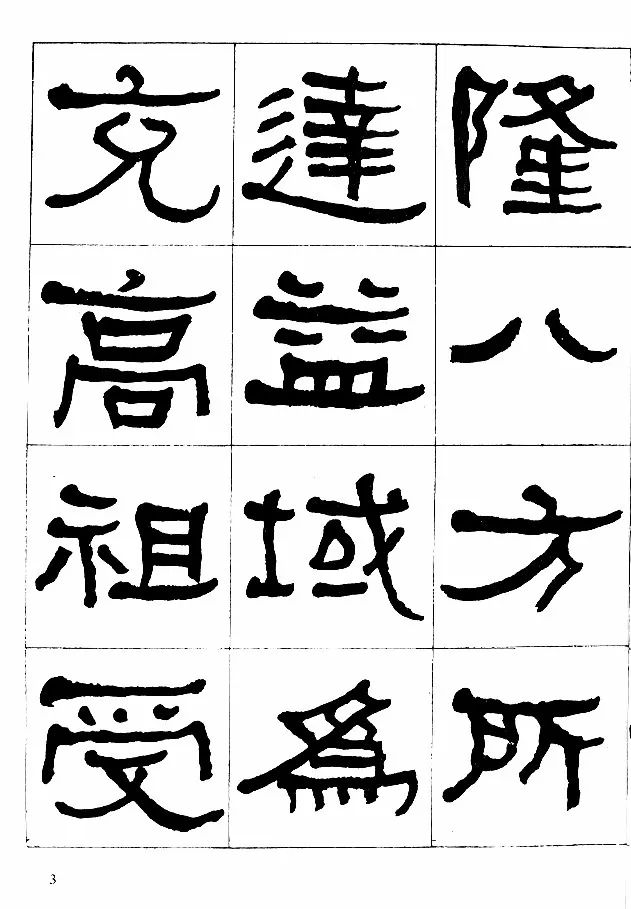 隆八方所
達益域爲
充高祖受
3